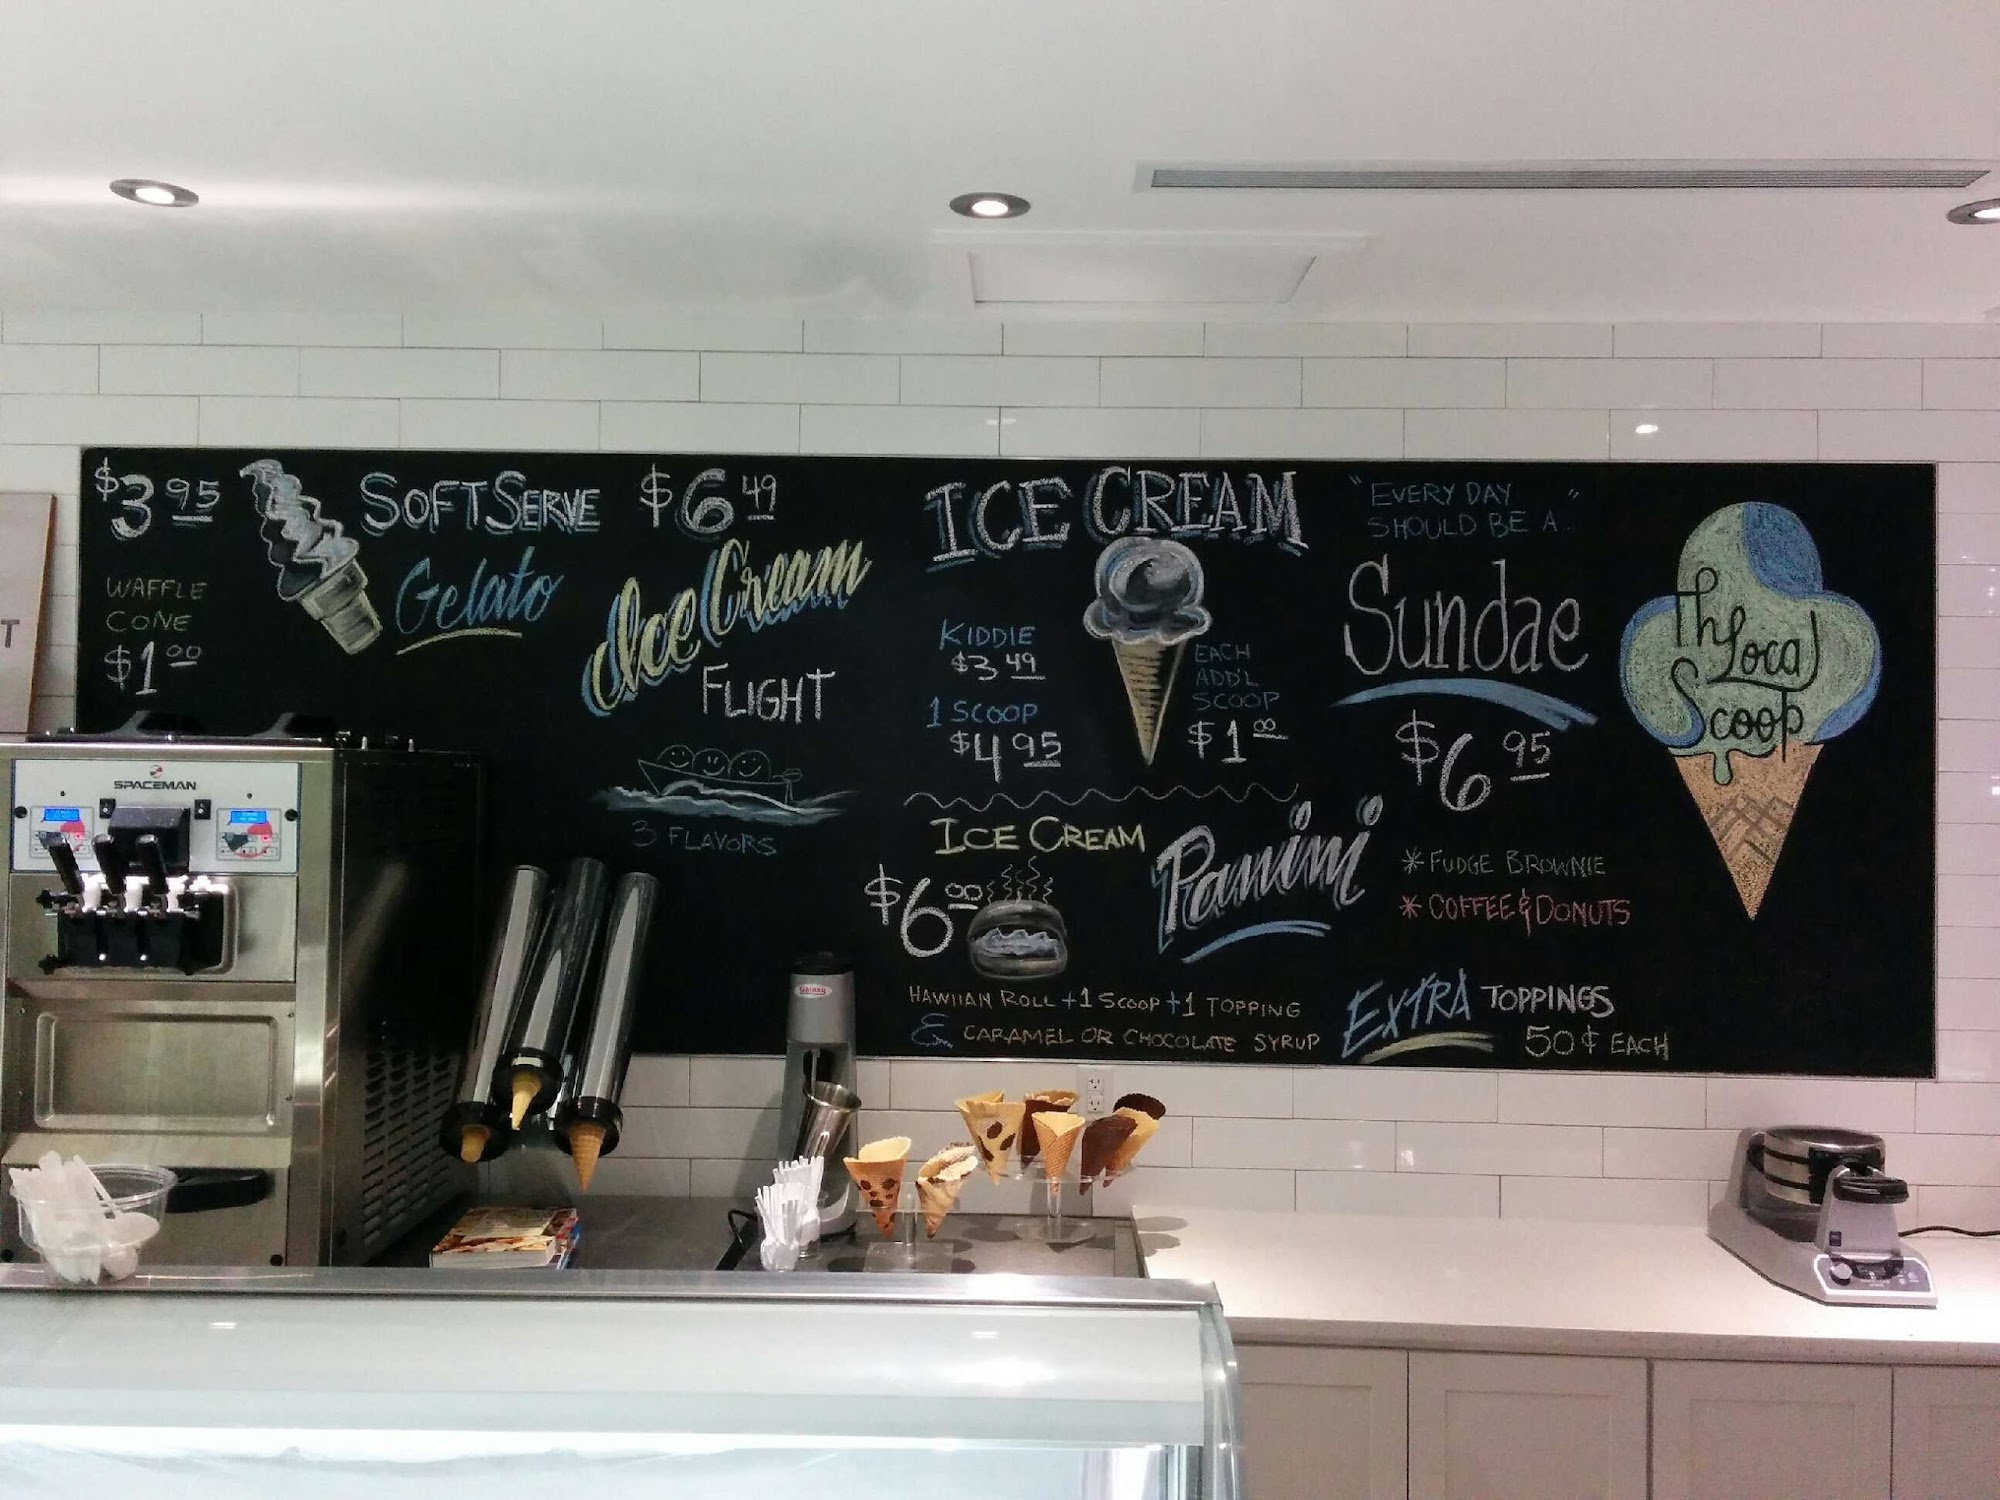 $3.95
SOFTSERVE
Gelato
WAFFLE
CONE
$1.00
$6.49
Ice Cream
FLIGHT
3 FLAVORS
ICE CREAM
KIDDIE
$3.49
1 SCOOP
$4.95
EACH
ADD'L
SCOOP
$1.00
ICE CREAM
Panini
$6.00
HAWIIAN ROLL + 1 SCOOP + 1 TOPPING
& CARAMEL OR CHOCOLATE SYRUP
"EVERY DAY
SHOULD BE A.."
Sundae
$6.95
* FUDGE BROWNIE
* COFFEE & DONUTS
EXTRA TOPPINGS
50¢ EACH
Th Local
Scoop
T
SPACEMAN
Galaxy